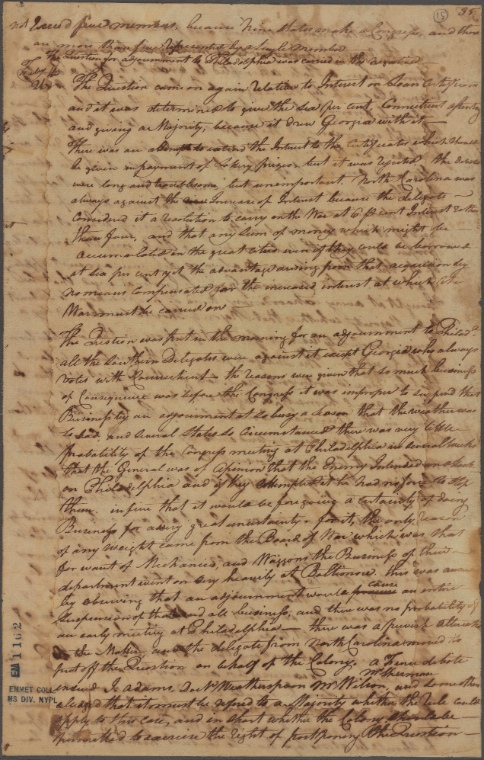 (15) 35
not exceed five members, because Nine States make a Congress, and there
are more than five Represented by a Single Member
The question for adjournment to Philadelphia was carried in the
Feby
The Question came on again Relative to Interest on Loan Certificates
and it was determined to give the Six per Cent, Connecticut
and giving a Majority, because it drew Georgia with it —
There was an attempt to extend the Interest to the Certificates which should
be given in payment of but it was rejected. the debates
were long and troublesome, but unimportant North Carolina was
always against the Increase of Interest because the delegate
Considered it a resolution to carry on the War at 6 Ct Interest
than four, and that any Sum of money which might be
accumulated in the great be borrowed
at Six per cent yet the advantage arising from that acquisition by
no means compensated for the increased interest at which the
War must be carried on
The Question was put in the morning for an adjournment to Philada
all the Southern Delegates were against it except Georgia who always
Votes with Connecticut — the reasons were given that so much business
of Consequence was before the Congress it was improper to Suspend that
Business by an adjournment at so busy a Season that the weather was
so bad and several States so Circumstanced there was very little
Probability of the Congress meeting at Philadelphia in several weeks
that the General was of Opinion that the Enemy Intended an attack
on Philadelphia and if they attempted it he had no force to stop
them. in fine that it would be foregoing a certainty of doing
Business for a very great uncertainty for it, the only reason
of any weight came from the Board of War which was that
for want of Mechanics, and Waggons the Business of their
department went on very heavily at Baltimore. this was answered
by observing that an adjournment would cause an entire
Suspension of that and all business, and there was no probability of
an early meeting at Philadelphia — there was a
the Motion and the delegate from North Carolina moved to
put off the Question on behalf of the Colony, a debate
ensued J. Adams, Doct Weatherspoon Mr Wilson, and some others
alledged that it must be referred to a Majority whether the rule could
apply to this case, and in short whether the Colony should be
permitted to exercise the right of postponing the Question —
1162
EMMET COLL.
MS DIV. NYPL